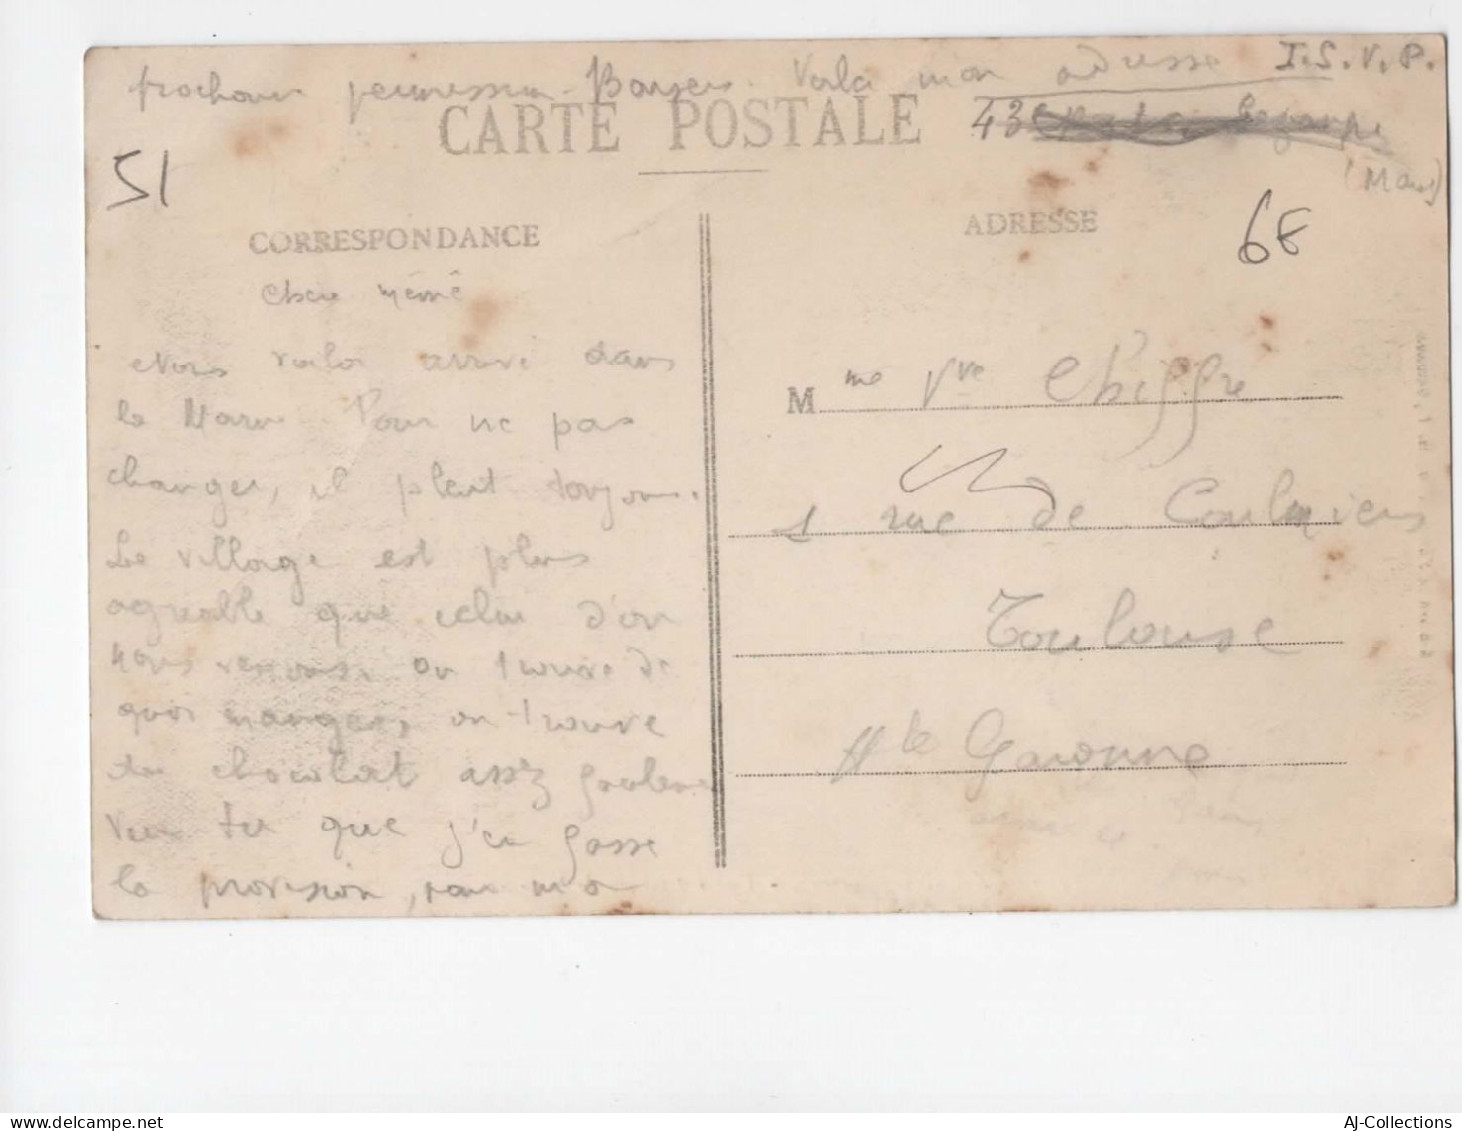 prochaine permission. Baisers. Voilà mon adresse T.S.V.P.
CARTE POSTALE
43
(Marne)
51
CORRESPONDANCE
ADRESSE
6€
Chère mémé
Nous voilà arrivé dans
la Marne. Pour ne pas
changer, il pleut toujours.
Le village est plus
agreable que celui d'où
nous venons. on trouve de
quoi manger, on trouve
du chocolat assez
tu que j'en fasse
la provision, pour ma
Mme Vve Chiffre
1 rue de Coulmiers
Toulouse
Hte Garonne
AJ-Collections